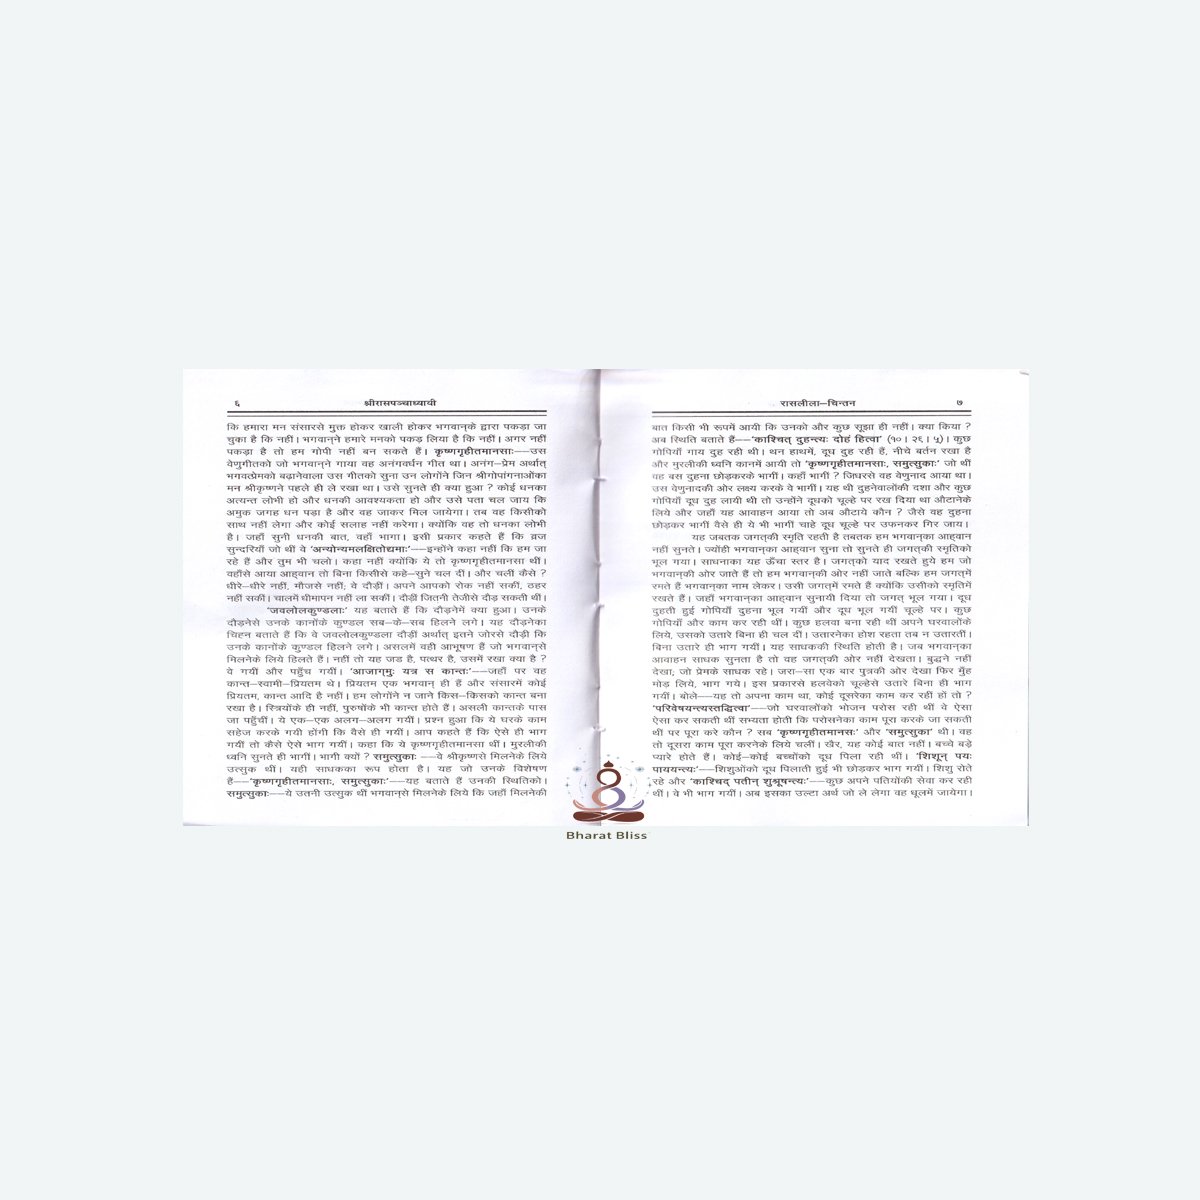 ६ श्रीरासपञ्चाध्यायी
कि हमारा मन संसारसे मुक्त होकर खाली होकर भगवान्‌के द्वारा पकड़ा जा
चुका है कि नहीं। भगवान्‌ने हमारे मनको पकड़ लिया है कि नहीं। अगर नहीं
पकड़ा है तो हम गोपी नहीं बन सकते हैं। कृष्णगृहीतमानसाः——उस
वेणुगीतको जो भगवान्‌ने गाया वह अनंगवर्धन गीत था। अनंग–प्रेम अर्थात्
भगवत्प्रेमको बढ़ानेवाला उस गीतको सुना उन लोगोंने जिन श्रीगोपांगनाओंका
मन श्रीकृष्णने पहले ही ले रखा था। उसे सुनते ही क्या हुआ ? कोई धनका
अत्यन्त लोभी हो और धनकी आवश्यकता हो और उसे पता चल जाय कि
अमुक जगह धन पड़ा है और वह जाकर मिल जायेगा। तब वह किसीको
साथ नहीं लेगा और कोई सलाह नहीं करेगा। क्योंकि वह तो धनका लोभी
है। जहाँ सुनी धनकी बात, वहाँ भागा। इसी प्रकार कहते हैं कि व्रज
सुन्दरियाँ जो थीं वे ‘अन्योन्यमलक्षितोद्यमाः’——इन्होंने कहा नहीं कि हम जा
रहे हैं और तुम भी चलो। कहा नहीं क्योंकि ये तो कृष्णगृहीतमानसा थीं।
वहाँसे आया आह्वान तो बिना किसीसे कहे–सुने चल दीं। और चलीं कैसे ?
धीरे–धीरे नहीं, मौजसे नहीं; वे दौड़ीं। अपने आपको रोक नहीं सकीं, ठहर
नहीं सकीं। चालमें धीमापन नहीं ला सकीं। दौड़ीं जितनी तेजीसे दौड़ सकती थीं।
‘जवलोलकुण्डलाः’ यह बताते हैं कि दौड़नेमें क्या हुआ। उनके
दौड़नेसे उनके कानोंके कुण्डल सब–के–सब हिलने लगे। यह दौड़नेका
चिह्न बताते हैं कि वे जवलोलकुण्डला दौड़ीं अर्थात् इतने जोरसे दौड़ी कि
उनके कानोंके कुण्डल हिलने लगे। असलमें वही आभूषण हैं जो भगवान्‌से
मिलनेके लिये हिलते हैं। नहीं तो यह जड है, पत्थर है, उसमें रखा क्या है ?
ये गयीं और पहुँच गयीं। ‘आजाग्मुः यत्र स कान्तः’——जहाँ पर वह
कान्त–स्वामी–प्रियतम थे। प्रियतम एक भगवान् ही हैं और संसारमें कोई
प्रियतम, कान्त आदि है नहीं। हम लोगोंने न जाने किस–किसको कान्त बना
रखा है। स्त्रियोंके ही नहीं, पुरुषोंके भी कान्त होते हैं। असली कान्तके पास
जा पहुँचीं। ये एक–एक अलग–अलग गयीं। प्रश्न हुआ कि ये घरके काम
सहेज करके गयी होंगी कि वैसे ही गयीं। आप कहते हैं कि ऐसे ही भाग
गयीं तो कैसे ऐसे भाग गयीं। कहा कि ये कृष्णगृहीतमानसा थीं। मुरलीकी
ध्वनि सुनते ही भागीं। भागी क्यों ? समुत्सुकाः ——वे श्रीकृष्णसे मिलनेके लिये
उत्सुक थीं। यही साधकका रूप होता है। यह जो उनके विशेषण
हैं——‘कृष्णगृहीतमानसाः, समुत्सुकाः’——यह बताते हैं उनकी स्थितिको।
समुत्सुकाः——ये उतनी उत्सुक थीं भगवान्‌से मिलनेके लिये कि जहाँ मिलनेकी
रासलीला–चिन्तन ७
बात किसी भी रूपमें आयी कि उनको और कुछ सूझा ही नहीं। क्या किया ?
अब स्थिति बताते हैं——‘काश्चित् दुहन्त्यः दोहं हित्वा’ (१०। २६। ५)। कुछ
गोपियाँ गाय दुह रही थी। थन हाथमें, दूध दुह रही हैं, नीचे बर्तन रखा है
और मुरलीकी ध्वनि कानमें आयी तो ‘कृष्णगृहीतमानसाः, समुत्सुकाः’ जो थीं
वह बस दुहना छोड़करके भागीं। कहाँ भागीं ? जिधरसे वह वेणुनाद आया था।
उस वेणुनादकी ओर लक्ष्य करके वे भागीं। यह थी दुहनेवालोंकी दशा और कुछ
गोपियाँ दूध दुह लायी थी तो उन्होंने दूधको चूल्हे पर रख दिया था औटानेके
लिये और जहाँ यह आवाहन आया तो अब औटाये कौन ? जैसे वह दुहना
छोड़कर भागीं वैसे ही ये भी भागीं चाहे दूध चूल्हे पर उफनकर गिर जाय।
यह जबतक जगत्‌की स्मृति रहती है तबतक हम भगवान्‌का आह्वान
नहीं सुनते। ज्योंही भगवान्‌का आह्वान सुना तो सुनते ही जगत्‌की स्मृतिको
भूल गया। साधनाका यह ऊँचा स्तर है। जगत्‌को याद रखते हुये हम जो
भगवान्‌की ओर जाते हैं तो हम भगवान्‌की ओर नहीं जाते बल्कि हम जगत्‌में
रमते हैं भगवान्‌का नाम लेकर। उसी जगत्‌में रमते हैं क्योंकि उसीको स्मृतिमें
रखते हैं। जहाँ भगवान्‌का आह्वान सुनायी दिया तो जगत् भूल गया। दूध
दुहती हुई गोपियाँ दुहना भूल गयीं और दूध भूल गयीं चूल्हे पर। कुछ
गोपियाँ और काम कर रही थीं। कुछ हलवा बना रही थीं अपने घरवालोंके
लिये, उसको उतारे बिना ही चल दीं। उतारनेका होश रहता तब न उतारतीं।
बिना उतारे ही भाग गयीं। यह साधककी स्थिति होती है। जब भगवान्‌का
आवाहन साधक सुनता है तो वह जगत्‌की ओर नहीं देखता। बुद्धने नहीं
देखा; जो प्रेमके साधक रहे। जरा–सा एक बार पुत्रकी ओर देखा फिर मुँह
मोड़ लिये, भाग गये। इस प्रकारसे हलवेको चूल्हेसे उतारे बिना ही भाग
गयीं। बोले——यह तो अपना काम था, कोई दूसरेका काम कर रहीं हों तो ?
‘परिवेषयन्त्यस्तद्धित्वा’——जो घरवालोंको भोजन परोस रही थीं वे ऐसा
ऐसा कर सकती थीं सभ्यता होती कि परोसनेका काम पूरा करके जा सकती
थीं पर पूरा करे कौन ? सब ‘कृष्णगृहीतमानसः’ और ‘समुत्सुका’ थी। वह
तो दूसरा काम पूरा करनेके लिये चलीं। खैर, यह कोई बात नहीं। बच्चे बड़े
प्यारे होते हैं। कोई–कोई बच्चोंको दूध पिला रही थीं। ‘शिशून् पयः
पाययन्त्यः’——शिशुओंको दूध पिलाती हुई भी छोड़कर भाग गयीं। शिशु रोते
रहे और ‘काश्चिद् पतीन् शुश्रूषन्त्यः’——कुछ अपने पतियोंकी सेवा कर रही
थीं। वे भी भाग गयीं। अब इसका उल्टा अर्थ जो ले लेगा वह धूलमें जायेगा।
Bharat Bliss